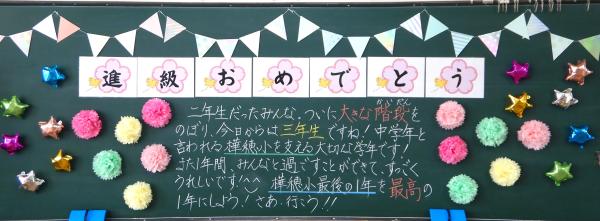 進級おめでとう
二年生だったみんな、ついに大きな階段を
かいだん
のぼり、今日からは三年生ですね！中学年と
言われる樺穂小を支える大切な学年です！
また1年間、みんなと過ごすことができて、すごく
うれしいです！^^ 樺穂小最後の1年を最高の
1年にしよう！さあ、行こう！！